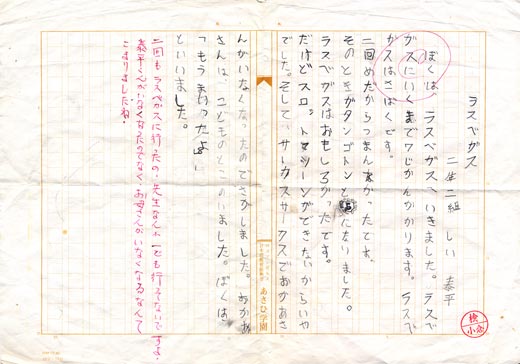 ラスベガス
二年二組 しい 泰平
ぼくは、ラスベガスへいきました。ラスベ
ガスにいくまで7じかんかかります。ラスベ
ガスはさばくです。
二回めだからつまんなかったです。
そのときがタンゴトンと
になりました。
ラスベガスはおもしろかったです。
だけどスロットマシーンができないからいや
でした。そして、サーカスサーカスでおかあさ
んがいなくなったのでさがしました。おかあ
さんは、こどものとこにいました。ぼくは、
「もう まよったよ」
といいました。
二回もラスベガスに行ったの。先生なんか一ども行ってないですよ。
泰平くんがいなくなったのでなく、お母さんがいなくなるなんて
こまりましたね。
あさひ学園